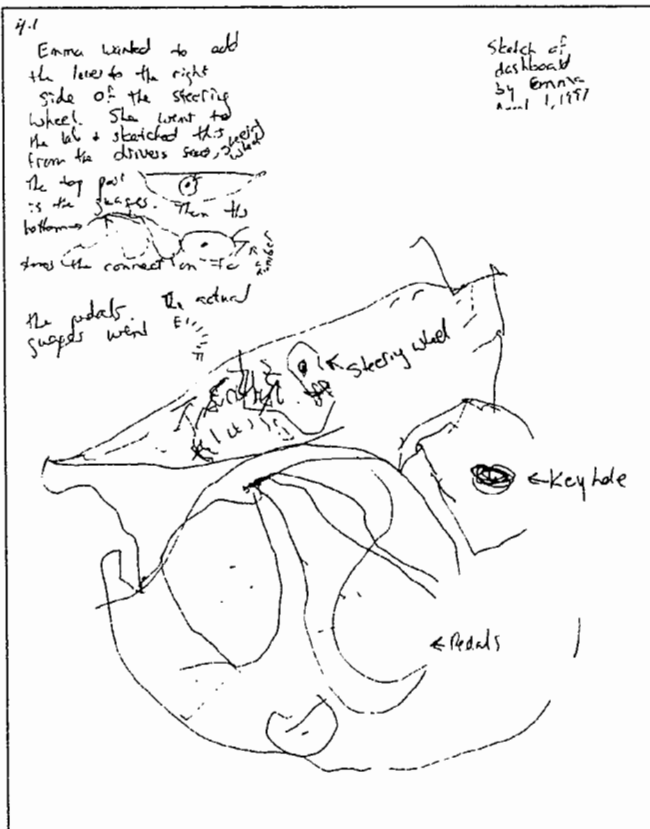 Emma wanted to add
the lever to the right
side of the steering
wheel. She went to
the lab & sketched this
from the drivers seat, steering wheel
The top part
is the guages. Then the
bottom
shows the connection to
the pedals. The actual
guages went
E
F
Sketch of
dashboard
by Emma
April 1, 1997
← Steering wheel
← Key hole
← Pedals